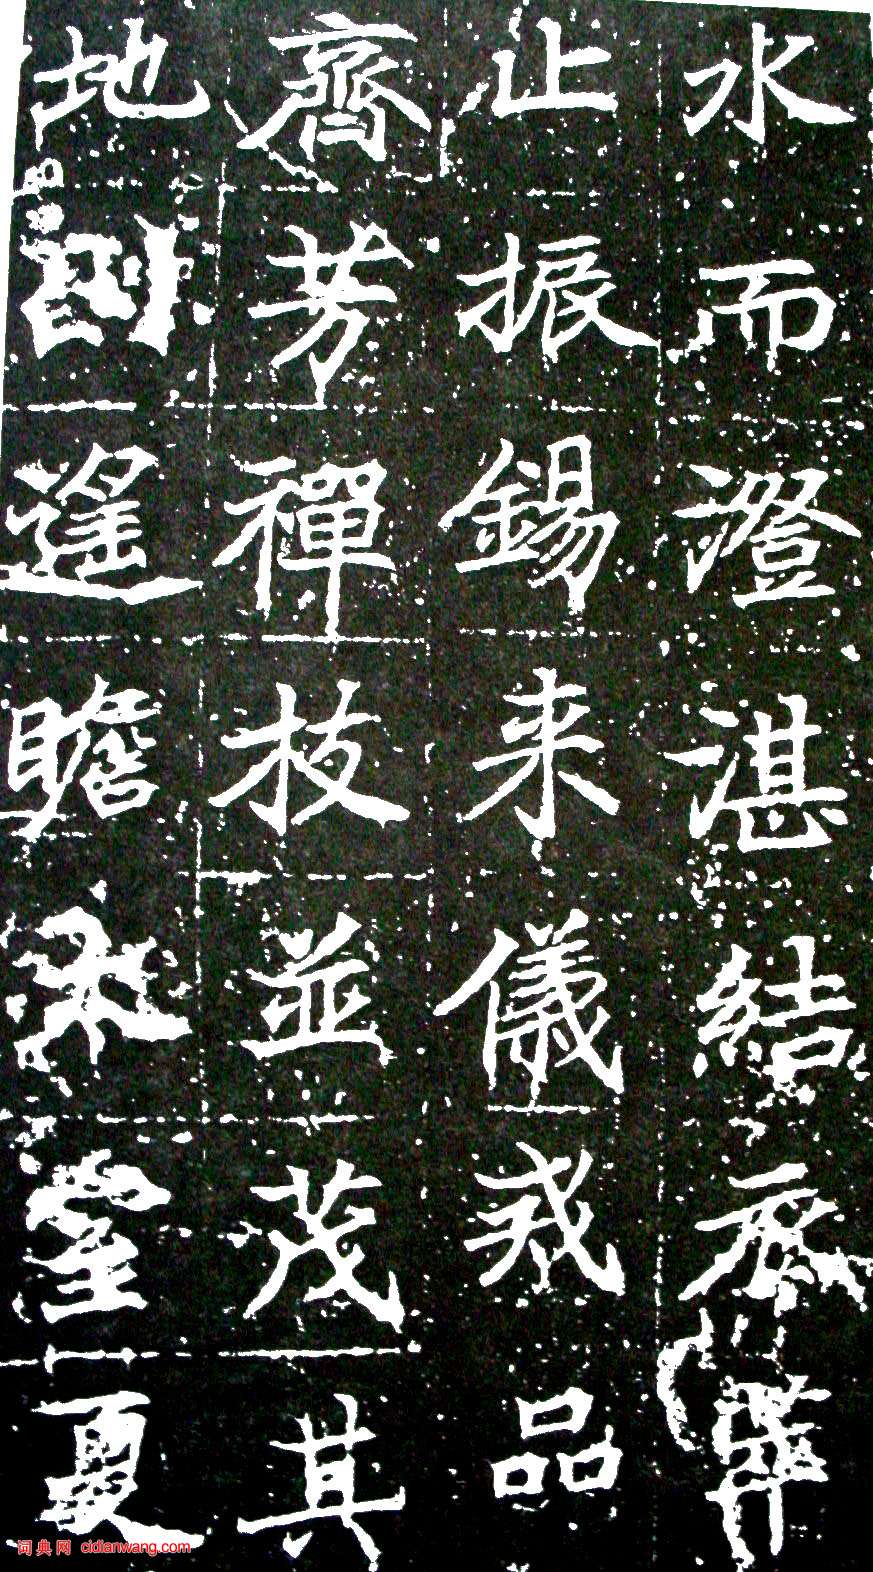 水而澄湛結
止振錫来儀戒品
齊芳禪枝並茂其
地遥瞻夏
词典网 cidianwang.com